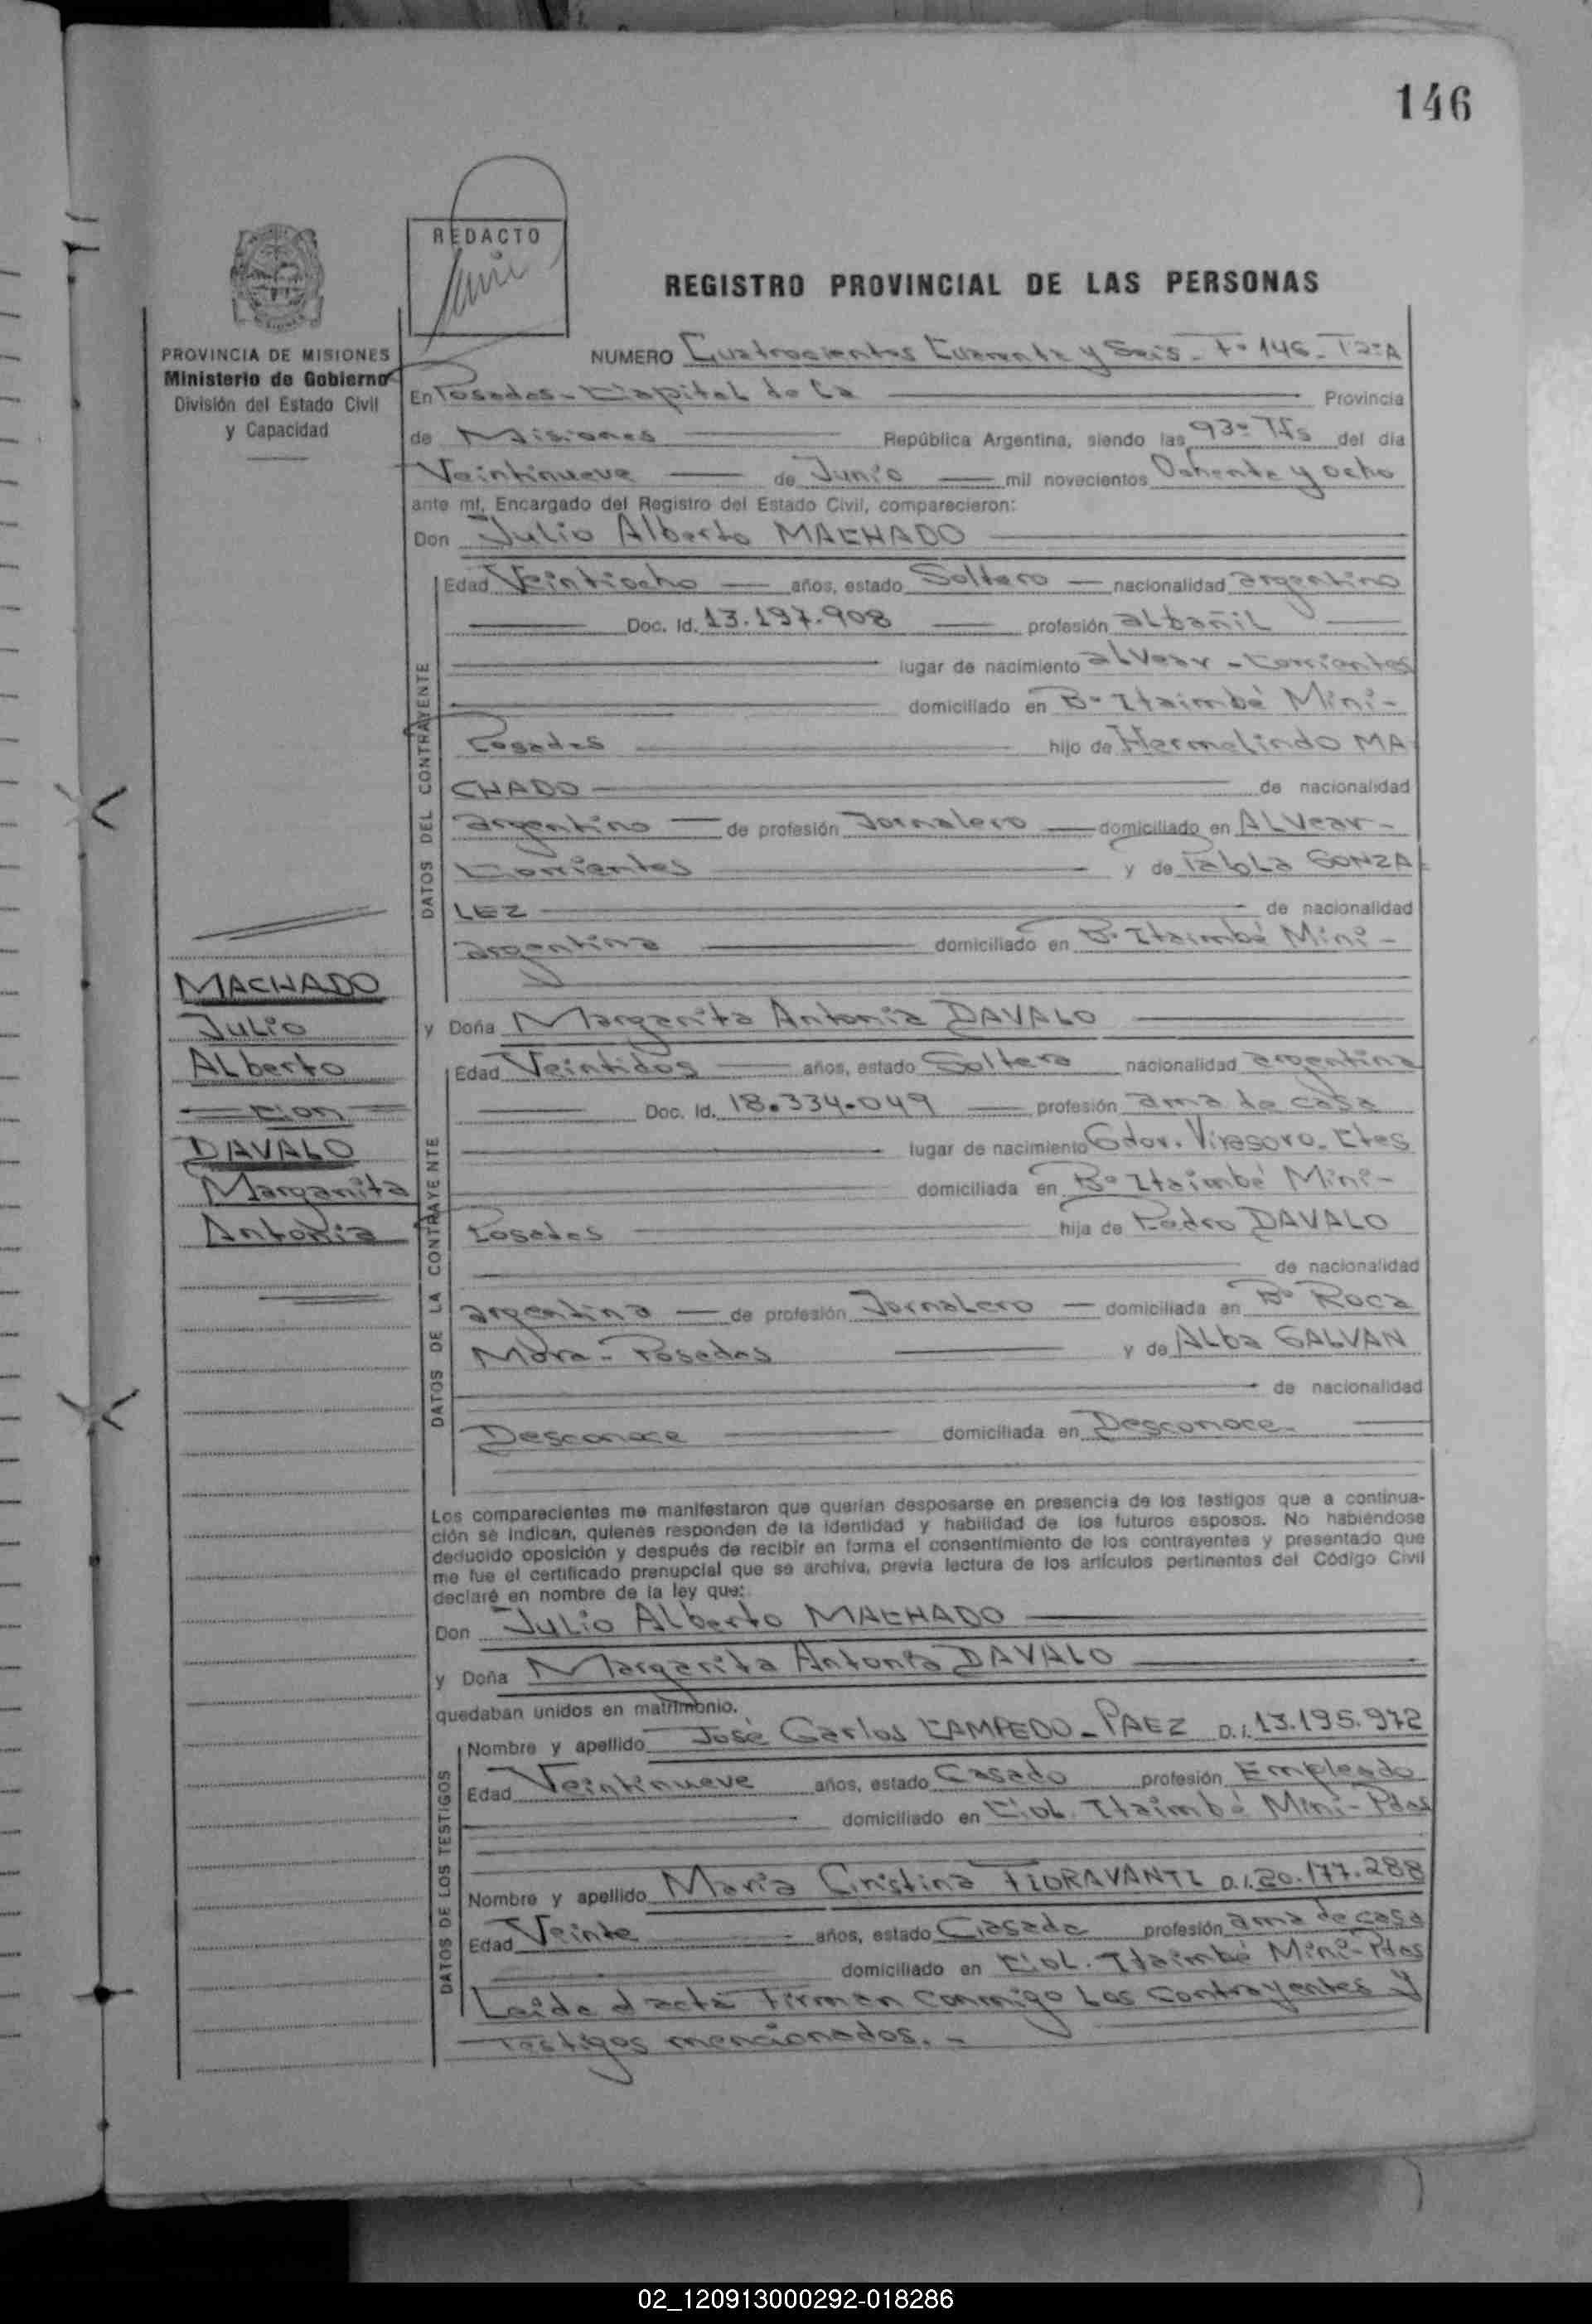 146
REDACTO
REGISTRO PROVINCIAL DE LAS PERSONAS
PROVINCIA DE MISIONES
Ministerio de Gobierno
División del Estado Civil
y Capacidad
NUMERO Cuatrocientos Cuarenta y Seis - Fº 146 - Tº2ºA
En Posadas - Capital de la Provincia
de Misiones República Argentina, siendo las Hs del día
Veintinueve de Junio mil novecientos Ochenta y ocho
ante mí, Encargado del Registro del Estado Civil, comparecieron:
Don Julio Alberto MACHADO
DATOS DEL CONTRAYENTE
Edad Veintiocho años, estado Soltero nacionalidad argentino
Doc. Id. 13.197.908 profesión albañil
lugar de nacimiento alvear - Corrientes
domiciliado en Bº Itaimbé Miní -
Posadas hijo de Hermelindo MA
CHADO de nacionalidad
argentino de profesión Jornalero domiciliado en ALvear -
Corrientes y de GONZA
LEZ de nacionalidad
argentina domiciliado en Bº Itaimbé Miní -
MACHADO
Julio
ALberto
con
DAVALO
Margarita
Antonia
y Doña Margarita Antonia DAVALO
DATOS DE LA CONTRAYENTE
Edad Veintidos años, estado Soltera nacionalidad argentina
Doc. Id. 18.334.049 profesión ama de casa
lugar de nacimiento Gdor. Virasoro - Ctes
domiciliada en Bº Itaimbé Miní -
Posadas hija de Pedro DAVALO
de nacionalidad
argentina de profesión Jornalero domiciliada en Bº Roca
Mora - Posadas y de ALba GALVAN
de nacionalidad
Desconoce domiciliada en Desconoce.
Los comparecientes me manifestaron que querían desposarse en presencia de los testigos que a continua-
ción se indican, quienes responden de la identidad y habilidad de los futuros esposos. No habiéndose
deducido oposición y después de recibir en forma el consentimiento de los contrayentes y presentado que
me fue el certificado prenupcial que se archiva, previa lectura de los artículos pertinentes del Código Civil
declaré en nombre de la ley que:
Don Julio Alberto MACHADO
y Doña Margarita Antonia DAVALO
quedaban unidos en matrimonio.
DATOS DE LOS TESTIGOS
Nombre y apellido José Carlos CAMPEDO - PAEZ D.I. 13.195.972
Edad Veintinueve años, estado Casado profesión Empleado
domiciliado en Itaimbé Miní - Pdas
Nombre y apellido María Cristina FIORAVANTI D.I. 20.177.288
Edad Veinte años, estado Casada profesión ama de casa
domiciliado en Itaimbé Miní - Pdas
Leida el acta Firman conmigo Los contrayentes y
Testigos mencionados. -
02_120913000292-018286